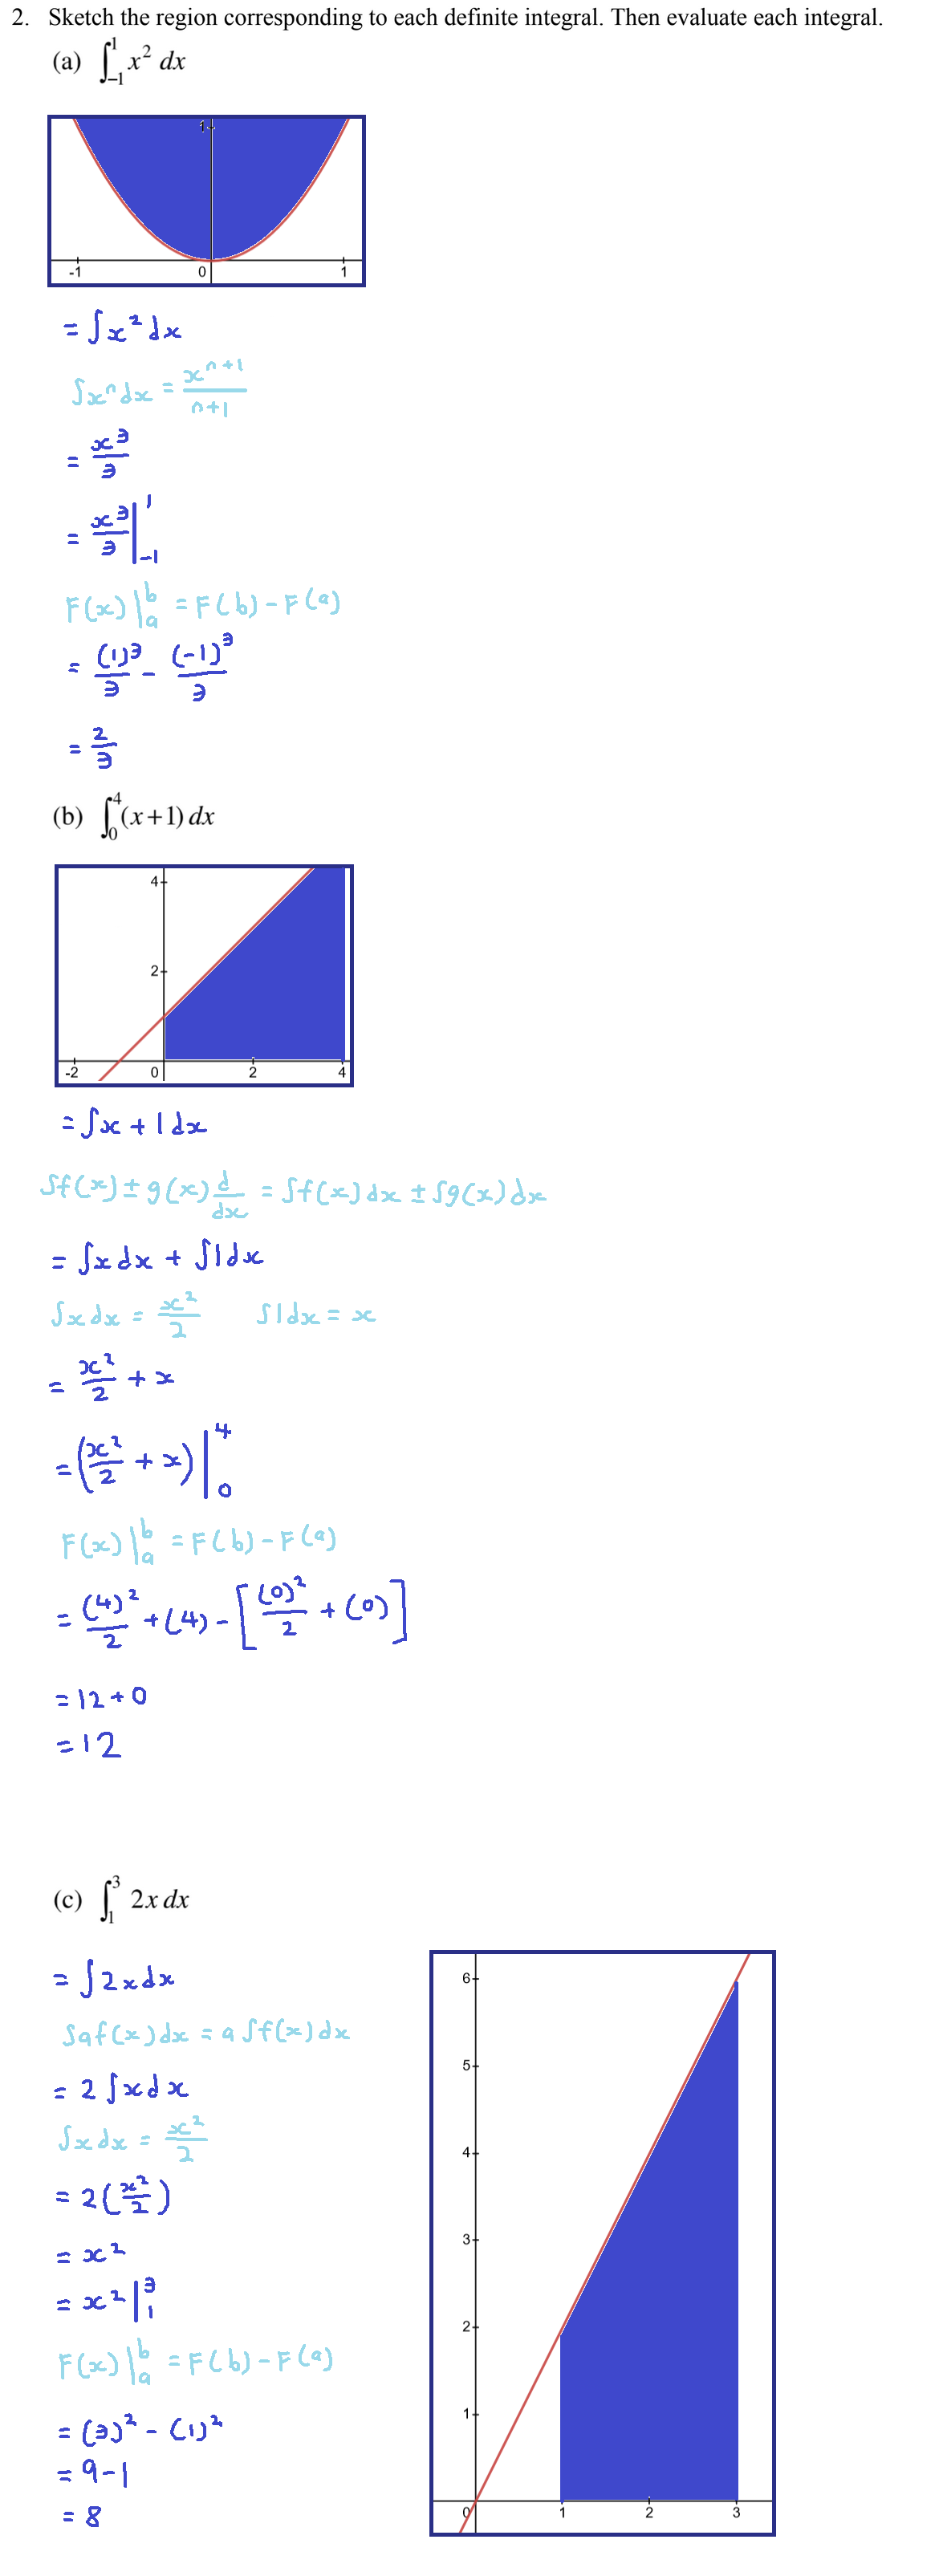 2. Sketch the region corresponding to each definite integral. Then evaluate each integral.
(a) ∫₋₁¹ x² dx
1
-1 0 1
= ∫x²dx
∫xⁿdx = xⁿ⁺¹/n+1
= x³/3
= x³/3 |₋₁¹
F(x)|ₐᵇ = F(b) - F(a)
= (1)³/3 - (-1)³/3
= 2/3
(b) ∫₀⁴ (x+1) dx
4
2
-2 0 2 4
= ∫x + 1dx
∫f(x) ± g(x) d/dx = ∫f(x)dx ± ∫g(x)dx
= ∫xdx + ∫1dx
∫xdx = x²/2 ∫1dx = x
= x²/2 + x
= (x²/2 + x)|₀⁴
F(x)|ₐᵇ = F(b) - F(a)
= (4)²/2 + (4) - [(0)²/2 + (0)]
= 12 + 0
= 12
(c) ∫₁³ 2x dx
= ∫2xdx
∫af(x)dx = a∫f(x)dx
= 2∫xdx
∫xdx = x²/2
= 2(x²/2)
= x²
= x²|₁³
F(x)|ₐᵇ = F(b) - F(a)
= (3)² - (1)²
= 9 - 1
= 8
6
5
4
3
2
1
0 1 2 3